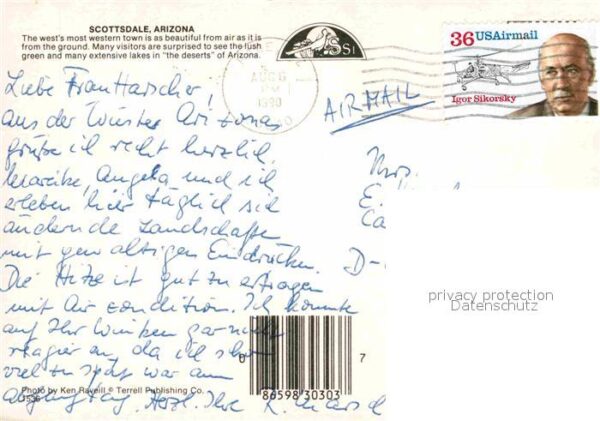 SCOTTSDALE, ARIZONA
The west's most western town is as beautiful from air as it is
from the ground. Many visitors are surprised to see the lush
green and many extensive lakes in "the deserts" of Arizona.
SSI
AUG 6
PM
1990
36 USAirmail
Igor Sikorsky
AIRMAIL
Liebe Frau Harscher!
aus der Wüste Arizonas
grüße ich recht herzlich.
Mareike, Angela und ich
erleben hier täglich sich
ändernde Landschaften
mit gewaltigen Eindrücken.
Die Hitze ist gut zu ertragen
mit Air condition. Ich konnte
auf Ihr Winken gar nicht
reagieren, da ich schon
viel zu spät war am
Abflugtag. Herzl. Ihre K.
Mrs.
E.
Ca
D-
privacy protection
Datenschutz
Photo by Ken Raveill © Terrell Publishing Co.
1536
0 86598 30303 7